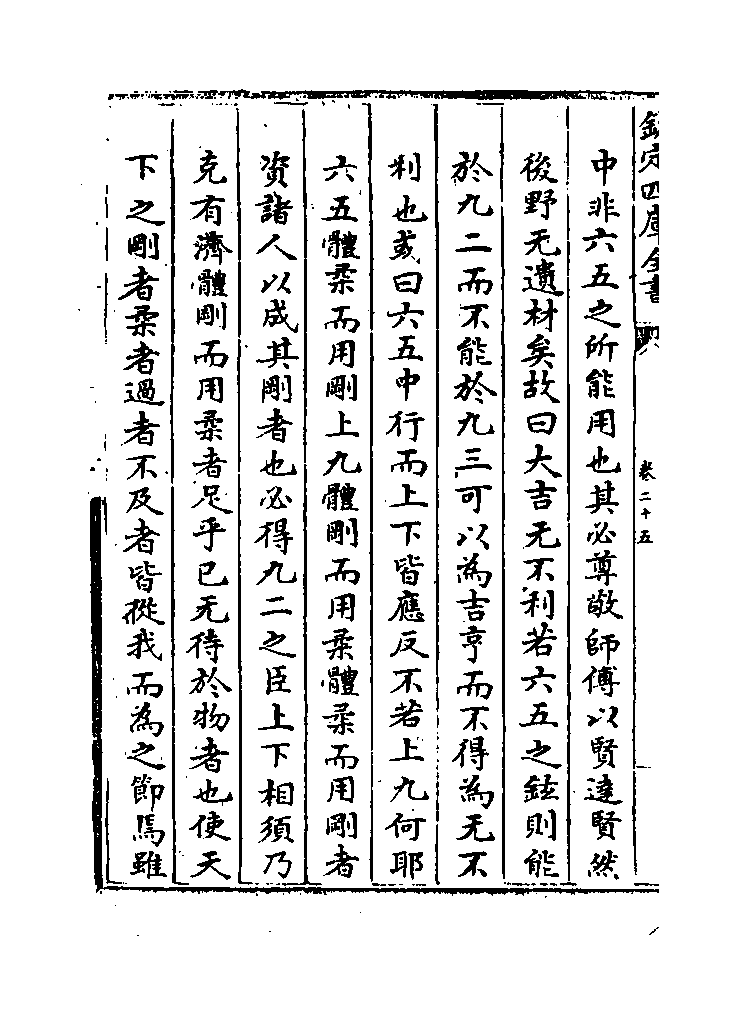 欽定四庫全書
卷二十五
中非六五之所能用也其必尊敬師傅以賢達賢然
後野无遺材矣故曰大吉无不利若六五之鉉則能
於九二而不能於九三可以為吉亨而不得為无不
利也或曰六五中行而上下皆應反不若上九何耶
六五體柔而用剛上九體剛而用柔體柔而用剛者
資諸人以成其剛者也必得九二之臣上下相須乃
克有濟體剛而用柔者足乎已无待於物者也使天
下之剛者柔者過者不及者皆從我而為之節焉雖